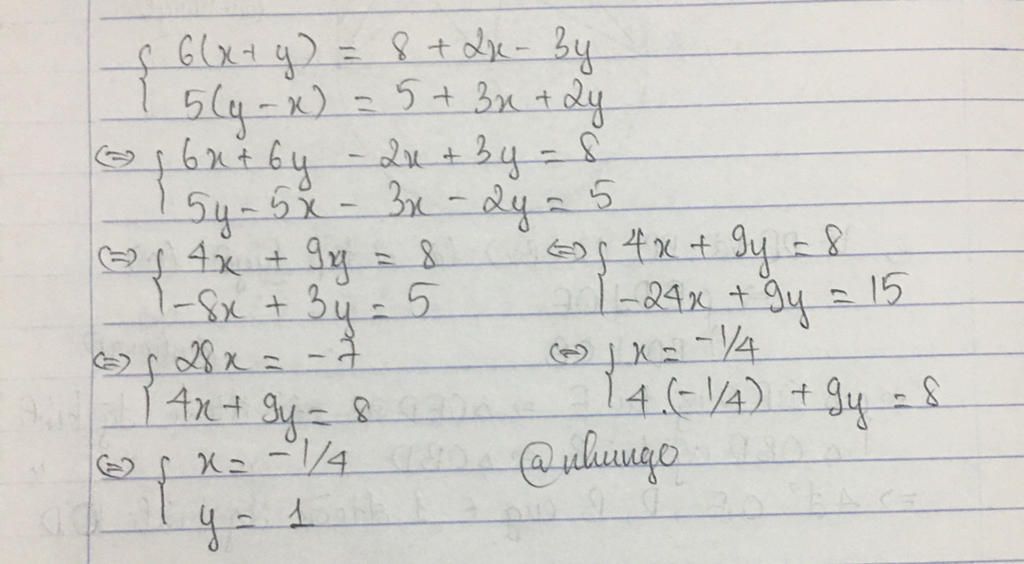 6(x+y) = 8 + 2x - 3y
5(y-x) = 5 + 3x + 2y
⇔ 6x + 6y - 2x + 3y = 8
5y - 5x - 3x - 2y = 5
⇔ 4x + 9y = 8 ⇔ 4x + 9y = 8
-8x + 3y = 5 -24x + 9y = 15
⇔ 28x = -7 ⇔ x = -1/4
4x + 9y = 8 4.(-1/4) + 9y = 8
⇔ x = -1/4 @nhungo
y = 1